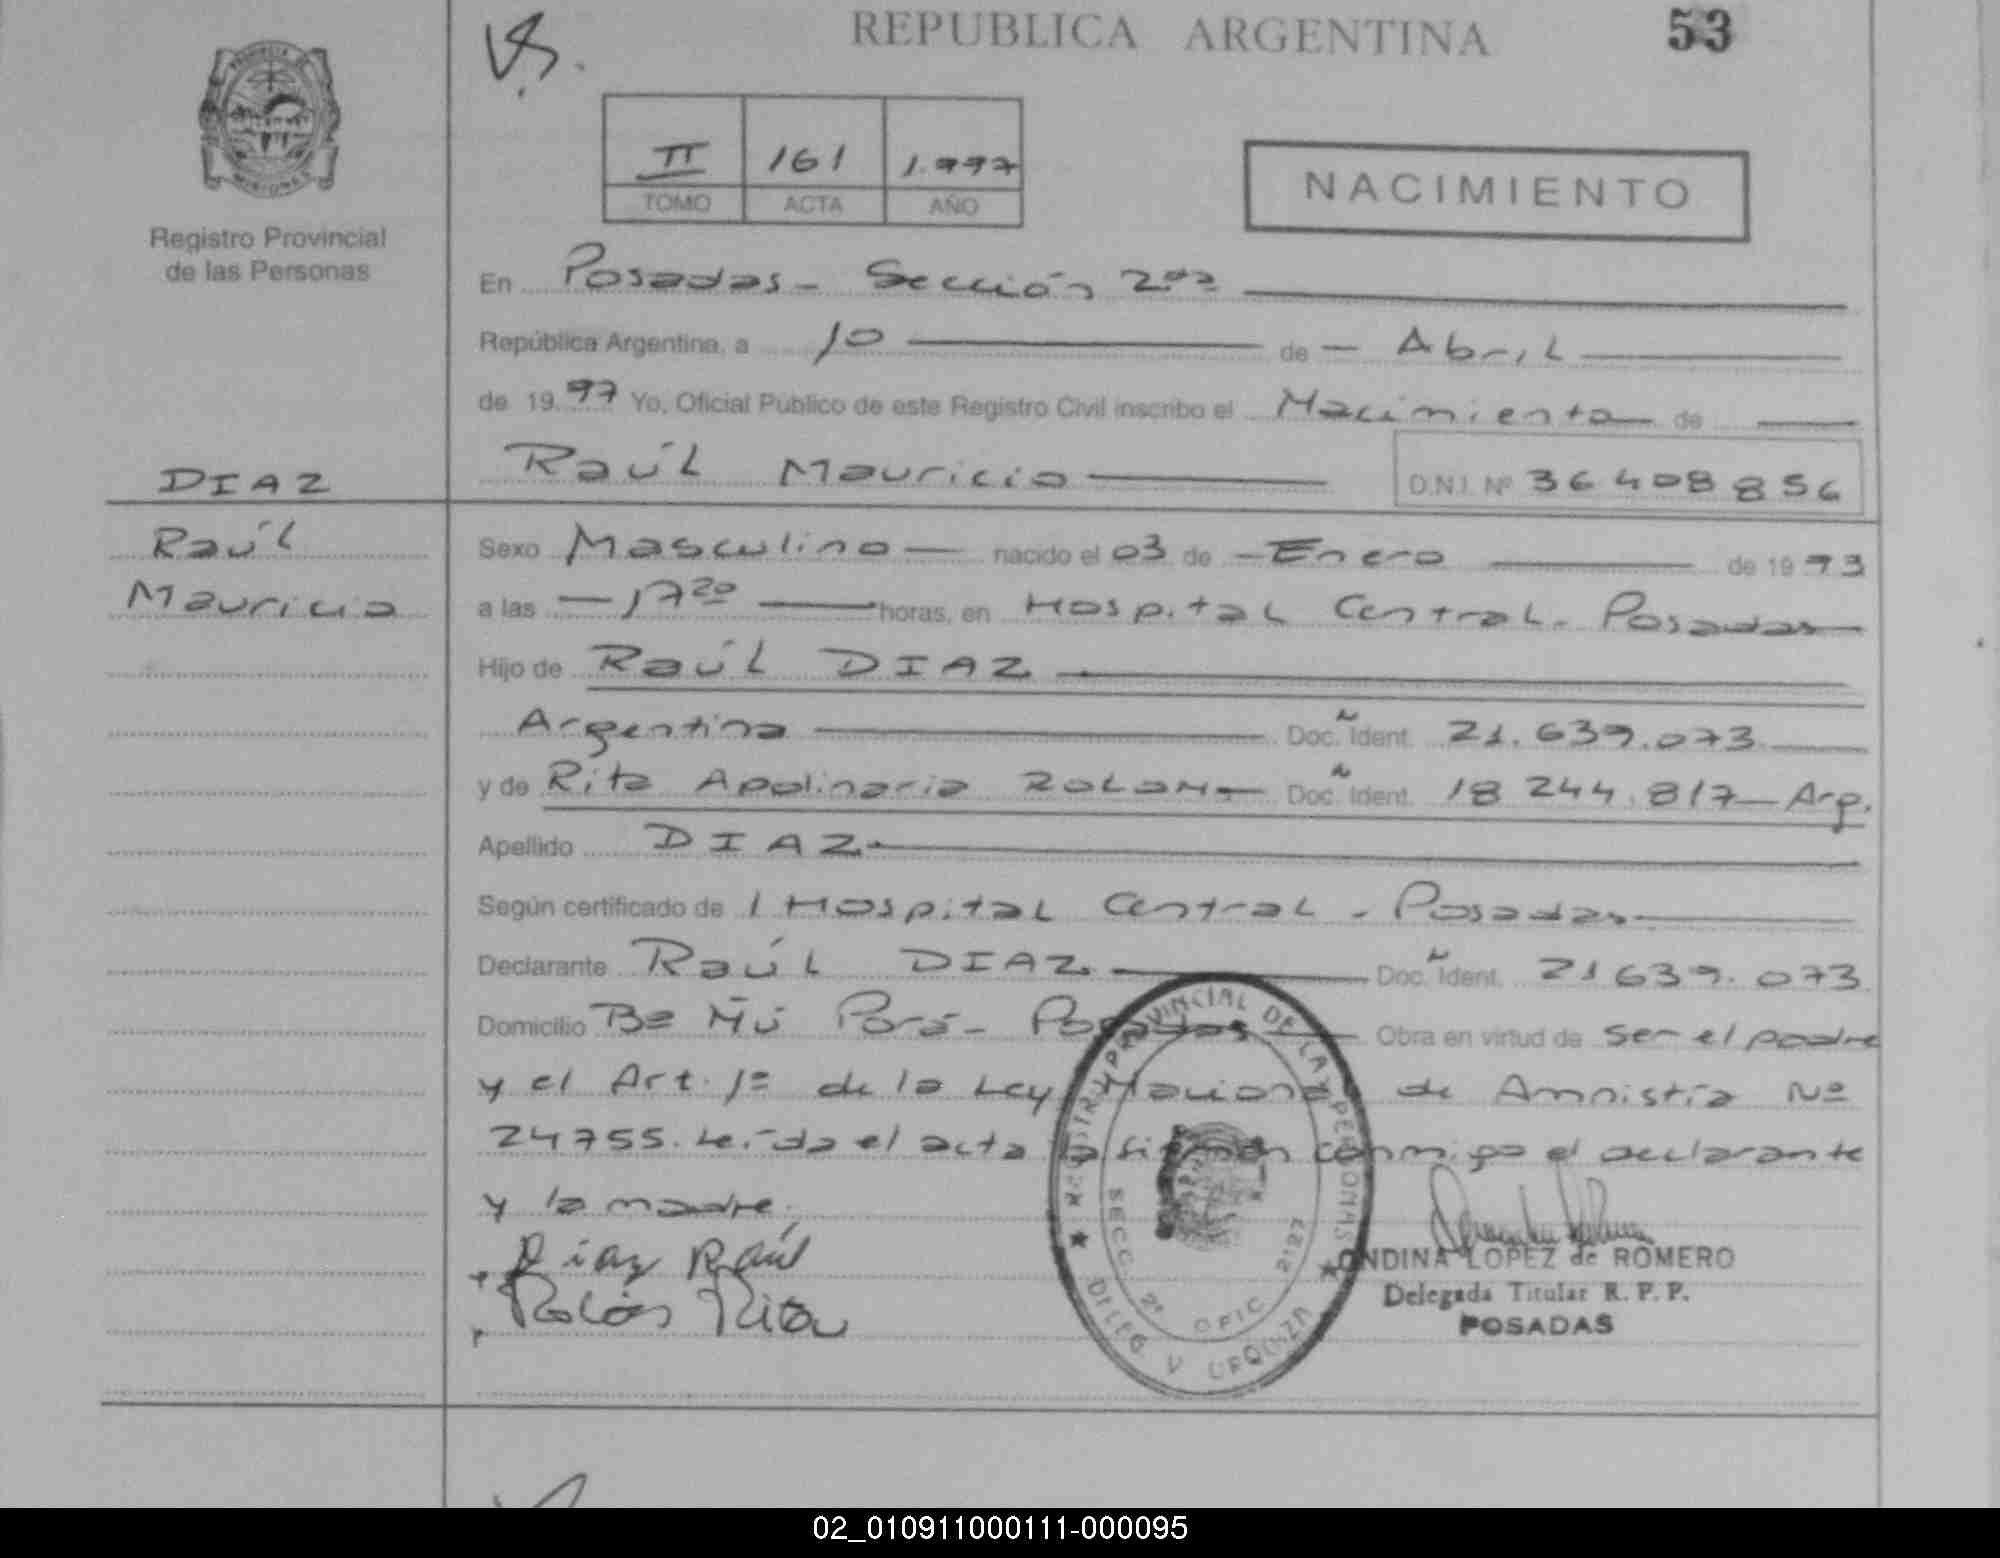 REPUBLICA ARGENTINA
53
PROVINCIA DE
MISIONES
Registro Provincial
de las Personas
II 161 1.997
TOMO ACTA AÑO
NACIMIENTO
En Posadas - Sección 2da
República Argentina, a 10 de - Abril
de 1997 Yo, Oficial Público de este Registro Civil inscribo el Nacimiento de
DIAZ
Raúl Mauricio D.N.I. Nº 36408856
Raúl
Mauricio
Sexo Masculino nacido el 03 de Enero de 1993
a las 17 20 horas, en Hospital Central. Posadas
Hijo de Raúl DIAZ
Argentina Doc. Ident. 21.639.073
y de Rita Apolinaria ROLON Doc. Ident. 18 244.817 - Arg.
Apellido DIAZ
Según certificado de l Hospital Central - Posadas
Declarante Raúl DIAZ Doc. Ident. 21639.073
Domicilio Bº Ñú Porá - Posadas Obra en virtud de ser el padre
y el Art. 1º de la Ley Nacional de Amnistía Nº
24755. Leída el acta la firman conmigo el declarante
y la madre.
Diaz Raúl
Rolón Rita
REGISTRO PROVINCIAL DE LAS PERSONAS
SECC. 2ª OFIC 2127
DELEG. V URQUIZA
ONDINA LOPEZ de ROMERO
Delegada Titular R. P. P.
POSADAS
02_010911000111-000095